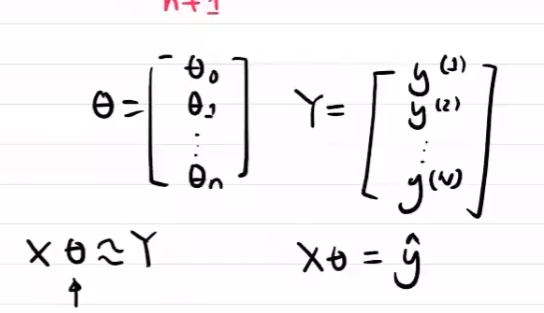 n+1
θ = [θ₀ θ₁ ⋮ θₙ] Y = [y⁽¹⁾ y⁽²⁾ ⋮ y⁽ᴺ⁾]
Xθ ≈ Y Xθ = ŷ
↑